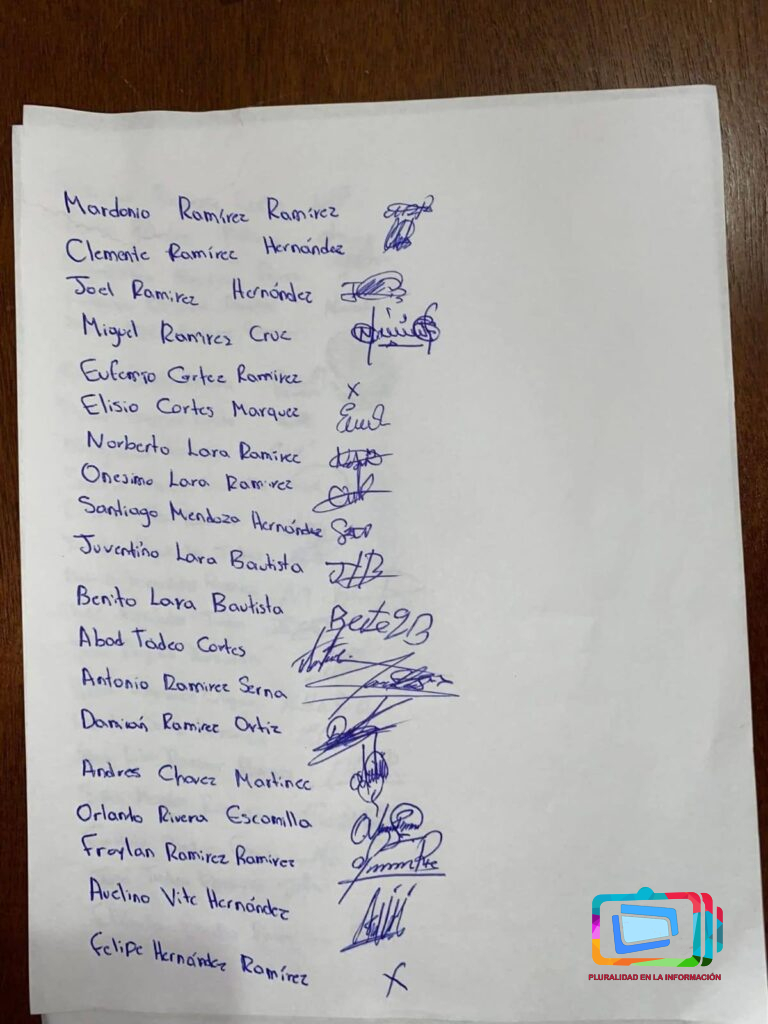 Mardonio Ramírez Ramírez
Clemente Ramírez Hernández
Joel Ramirez Hernández
Miguel Ramirez Cruz
Eufemio Cortez Ramirez
x
Elisio Cortes Marquez
Norberto Lara Ramirez
Onesimo Lara Ramirez
Santiago Mendoza Hernández
Juventino Lara Bautista
Benito Lara Bautista
Abad Tadeo Cortes
Antonio Ramirez Serna
Damián Ramirez Ortiz
Andres Chavez Martinez
Orlando Rivera Escamilla
Froylan Ramirez Ramirez
Avelino Vite Hernández
Felipe Hernández Ramírez x
PLURALIDAD EN LA INFORMACIÓN